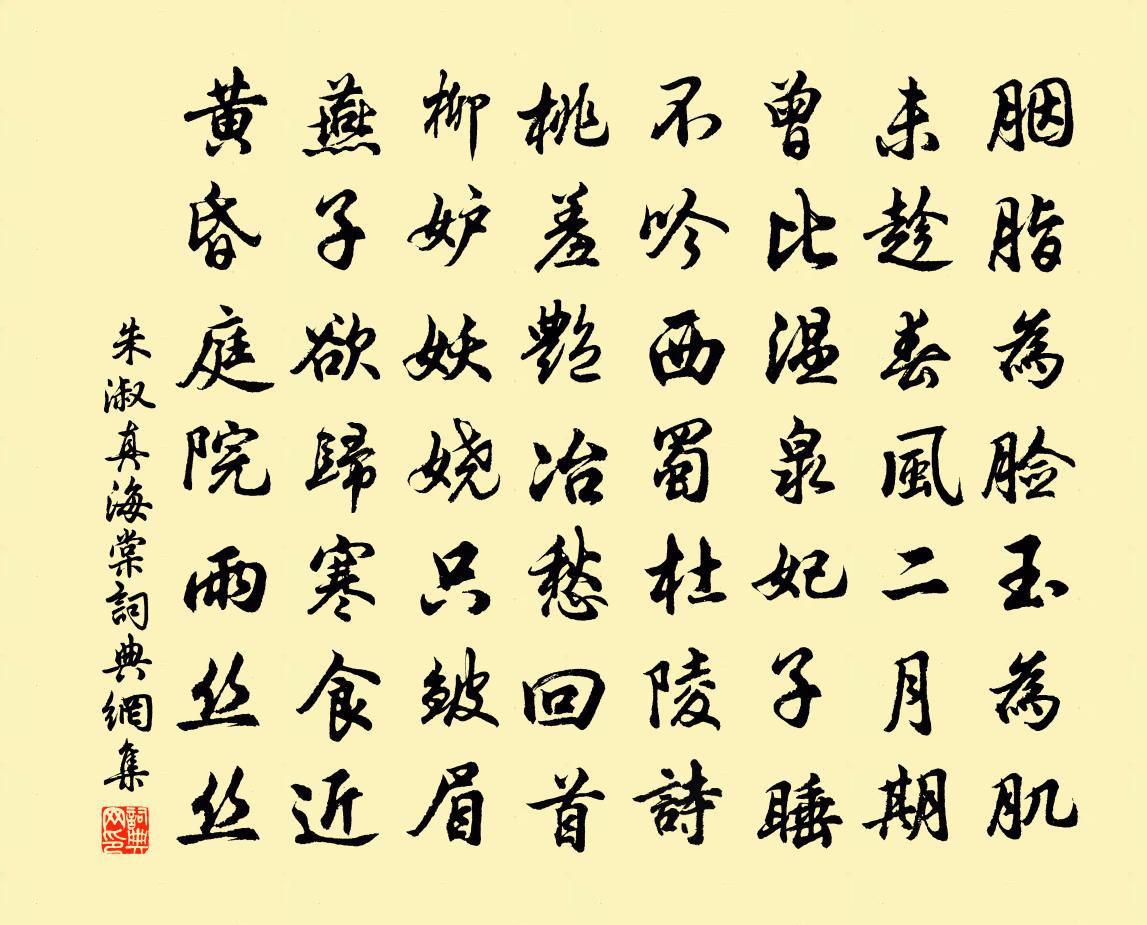 胭脂為脸玉為肌
未趁春風二月期
曾比温泉妃子睡
不吟西蜀杜陵詩
桃羞艷冶愁回首
柳妒妖娆只皺眉
燕子欲歸寒食近
黄昏庭院雨丝丝
朱淑真海棠詞典網集
詞典网印